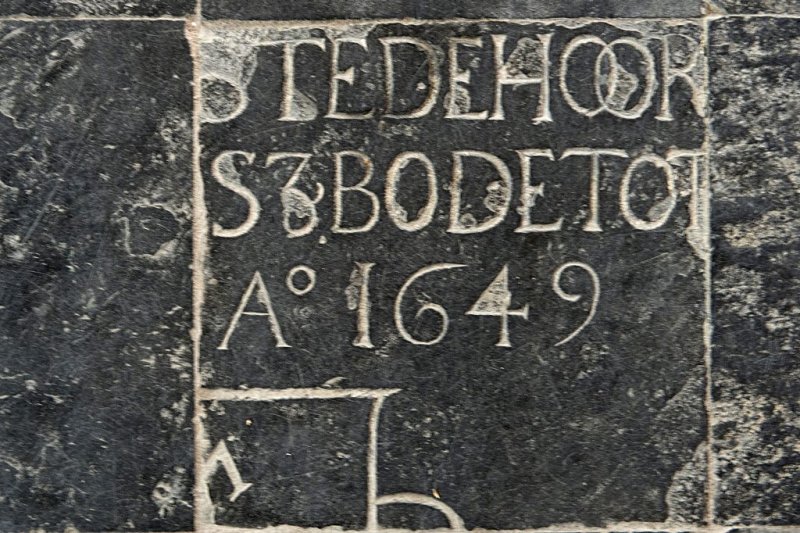 STEDEHOOR
SZBODETOT
A° 1649